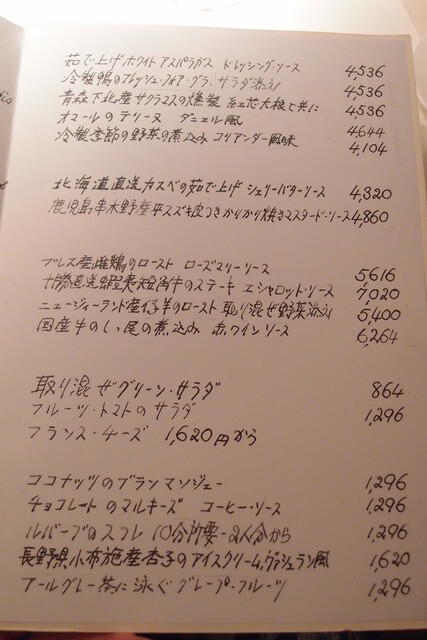 茹で上げホワイトアスパラガス ドレッシング・ソース 4,536
冷製鴨のフレッシュ・フォア・グラ、サラダ添え 4,536
青森下北産サクラマスの燻製 紅芯大根と共に 4,536
オマールのテリーヌ ダニエル風 4644
冷製季節の野菜の煮込み コリアンダー風味 4,104
北海道直送カスベの茹で上げ シェリーバターソース 4,320
鹿児島串木野産平スズキ皮つきかりかり焼きマスタード・ソース 4,860
ブレス産雌鶏のロースト ローズマリーソース 5616
十勝直送蝦夷短角牛のステーキ エシャロット・ソース 7,020
ニュージィーランド産仔羊のロースト 取り混ぜ野菜添え 5,400
国産牛のしっ尾の煮込み 赤ワインソース 6,264
取り混ぜグリーン・サラダ 864
フルーツ・トマトのサラダ 1,296
フランス・チーズ 1,620円から
ココナッツのブランマンジェー 1,296
チョコレートのマルキーズ コーヒー・ソース 1,296
ルバーブのスフレ 10分所要-2人分から 1,296
長野県小布施産杏子のアイスクリーム、ヴァシュラン風 1,620
アールグレー茶に泳ぐグレープ・フルーツ 1,296